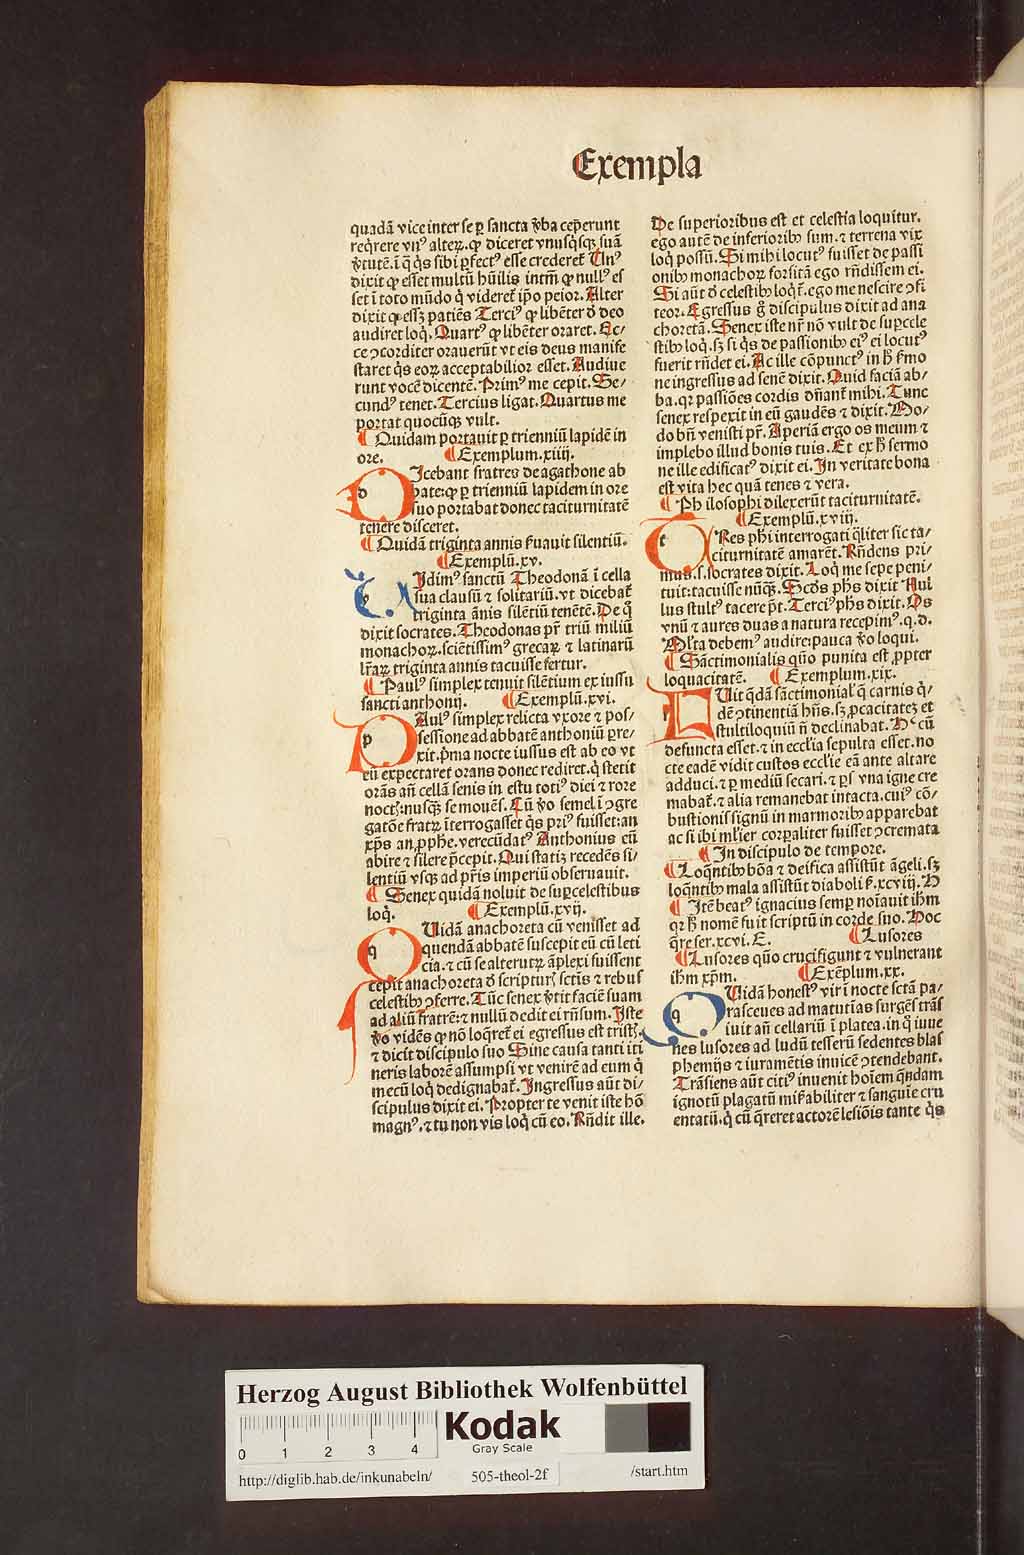 Exempla
quadā vice inter se ꝑ sancta v̓ba ceꝑunt
req̄rere vnꝰ alteꝝ. ꝙ diceret vnusq̇sqꝫ suā
v̓tutē. ī q̇ q̇s sibi ꝑfectꝰ esse crederet̄ Unꝰ
dixit ꝙ esset multū hūilis intm̄ ꝙ nullꝰ es
set ī toto mūdo q̇ videret̄ ip̄o peior. Alter
dixit ꝙ essꝫ patiēs Terciꝰ ꝙ libēter d̓ deo
audiret loq̇. Quartꝰ ꝙ libēter oraret. Ec/
ce ꝯcorditer orauerūt vt eis deus manife
staret q̇s eoꝝ acceptabilior esset. Audiue
runt vocē dicentē. Primꝰ me cepit. Se/
cundꝰ tenet. Tercius ligat. Quartus me
portat quocūqꝫ vult.
¶ Quidam portauit ꝑ trienniū lapidē in
ore. ¶ Exemplum.xiiij.
dIcebant fratres de agathone ab
bate: ꝙ ꝑ trienniū lapidem in ore
suo portabat donec taciturnitatē
tenere disceret.
¶ Quidā triginta annis ẜuauit silentiū.
¶ Exemplū.xv.
vIdimꝰ sanctū Theodonā ī cella
sua clausū ⁊ solitariū. vt dicebat̄
triginta ānis silētiū tenētē. De q̇
dixit socrates. Theodonas pr̄ triū miliū
monachoꝝ. sciētissimꝰ grecaꝝ ⁊ latinarū
lr̄aꝝ triginta annis tacuisse fertur.
¶ Paulꝰ simplex tenuit silētium ex iussu
sancti anthonij. ¶ Exemplū.xvi.
pAulꝰ simplex relicta vxore ⁊ pos/
sessione ad abbatē anthoniū ꝑre/
xit. p̄ma nocte iussus est ab eo vt
eū expectaret orans donec rediret. q̇ stetit
orās an̄ cellā senis in estu totiꝰ diei ⁊ rore
noctꝭ: nusqꝫ se mouēs. Cū v̓o semel ī ꝯgre
gatōe fratꝝ īterrogasset q̇s priꝰ fuisset: an
xp̄s an ꝓphe. verecūdatꝰ Anthonius eū
abire ⁊ silere p̄cepit. Qui statim recedēs si/
lentiū vsqꝫ ad pr̄is imperiū obseruauit.
¶ Senex quidā noluit de suꝑcelestibus
loq̇. ¶ Exemplū.xvij.
qUidā anachoreta cū venisset ad
quendā abbatē suscepit eū cū leti
cia. ⁊ cū se alterutꝝ āplexi fuissent
cepit anachoreta d̓ scripturꝭ sctīs ⁊ rebus
celestibꝰ ꝯferre. Tūc senex v̓tit faciē suam
ad aliū fratrē: ⁊ nullū dedit ei rn̄sum. Iste
v̓o vidēs ꝙ nō loq̄ret̄ ei egressus est tristꝭ.
⁊ dicit discipulo suo Sine causa tanti iti
neris laborē assumpsi vt venirē ad eum q̇
mecū loq̇ dedignabat̄. Ingressus aūt di/
scipulus dixit ei. Propter te venit iste hō
magnꝰ. ⁊ tu non vis loq̇ cū eo. Rn̄dit ille.
De superioribus est et celestia loquitur.
ego autē de inferioribꝰ sum. ⁊ terrena vix
loq̇ possū. Si mihi locutꝰ fuisset de passi
onibꝰ monachoꝝ forsitā ego rn̄dissem ei.
Si aūt d̓ celestibꝰ loq̇t̄. ego me nescire ꝯfi
teor. Egressus g̊ discipulus dixit ad ana
choretā. Senex iste nr̄ nō vult de suꝑcele
stibꝰ loq̇. sꝫ si q̇s de passionibꝰ eiꝰ ei locutꝰ
fuerit rn̄det ei. Ac ille cōpunctꝰ in h̄ ẜmo
ne ingressus ad senē dixit. Quid faciā ab/
ba. qꝛ passiōes cordis dn̄ant̄ mihi. Tunc
senex respexit in eū gaudēs ⁊ dixit. Mo/
do bn̄ venisti pr̄. Aperiā ergo os meum ⁊
implebo illud bonis tuis. Et ex h̄ sermo
ne ille edificatꝰ dixit ei. In veritate bona
est vita hec quā tenes ⁊ vera.
¶ Philosophi dilexerūt taciturnitatē.
¶ Exemplū.xviij.
tRes ph̄i interrogati q̄liter sic ta/
citurnitatē amarēt. Rn̄dens pri/
mus.s. socrates dixit. Loq̇ me sepe peni/
tuit: tacuisse nūqꝫ. Scd̄s ph̄s dixit Nul
lus stultꝰ tacere pt̄. Terciꝰ ph̄s dixit. Os
vnū ⁊ aures duas a natura recepimꝰ. q.d.
Ml̄ta debemꝰ audire: pauca v̓o loqui.
¶ Sāctimonialis quō punita est ꝓpter
loquacitatē. ¶ Exemplum.xix.
fUit q̄dā sāctimonialꝭ q̄ carnis q̇/
dē ꝯtinentiā hn̄s. sꝫ ꝓcacitateꝫ et
stultiloquiū n̄ declinabat. Hec cū
defuncta esset. ⁊ in eccl̄ia sepulta esset. no
cte eadē vidit custos ecclie eā ante altare
adduci. ⁊ ꝑ mediū secari. ⁊ ꝑs vna igne cre
mabat̄. ⁊ alia remanebat intacta. cuiꝰ cō/
bustionis signū in marmoribꝰ apparebat
ac si ibi ml̄ier corꝑaliter fuisset ꝯcremata
¶ In discipulo de tempore.
¶ Loq̄ntibꝰ bōa ⁊ deifica assistūt āgeli. sꝫ
loq̄ntibꝰ mala assistūt diaboli ẜ. xcviij. H
¶ Itē beatꝰ ignacius semꝑ noīauit ih̄m
qꝛ h̄ nomē fuit scriptū in corde suo. Hoc
q̄re ser. xcvi. E. ¶ Lusores
¶ Lusores quō crucifigunt ⁊ vulnerant
ih̄m xp̄m. ¶ Exēplum.xx.
qUidā honestꝰ vir ī nocte sctā pa/
rasceues ad matutias surgēs trās
iuit an̄ cellariū ī platea. in q̇ iuue
nes lusores ad ludū tesserū sedentes blas
phemijs ⁊ iuramētis inuicē ꝯtendebant.
Trāsiens aūt citiꝰ inuenit hoīem q̄ndam
ignotū plagatū mirabiliter ⁊ sanguīe cru
entatū. q̇ cū q̄reret actorē lesiōis tante q̇s
Herzog August Bibliothek Wolfenbüttel
0 1 2 3 4
Kodak
Gray Scale
http://diglib.hab.de/inkunabeln/ 505-theol-2f /start.htm